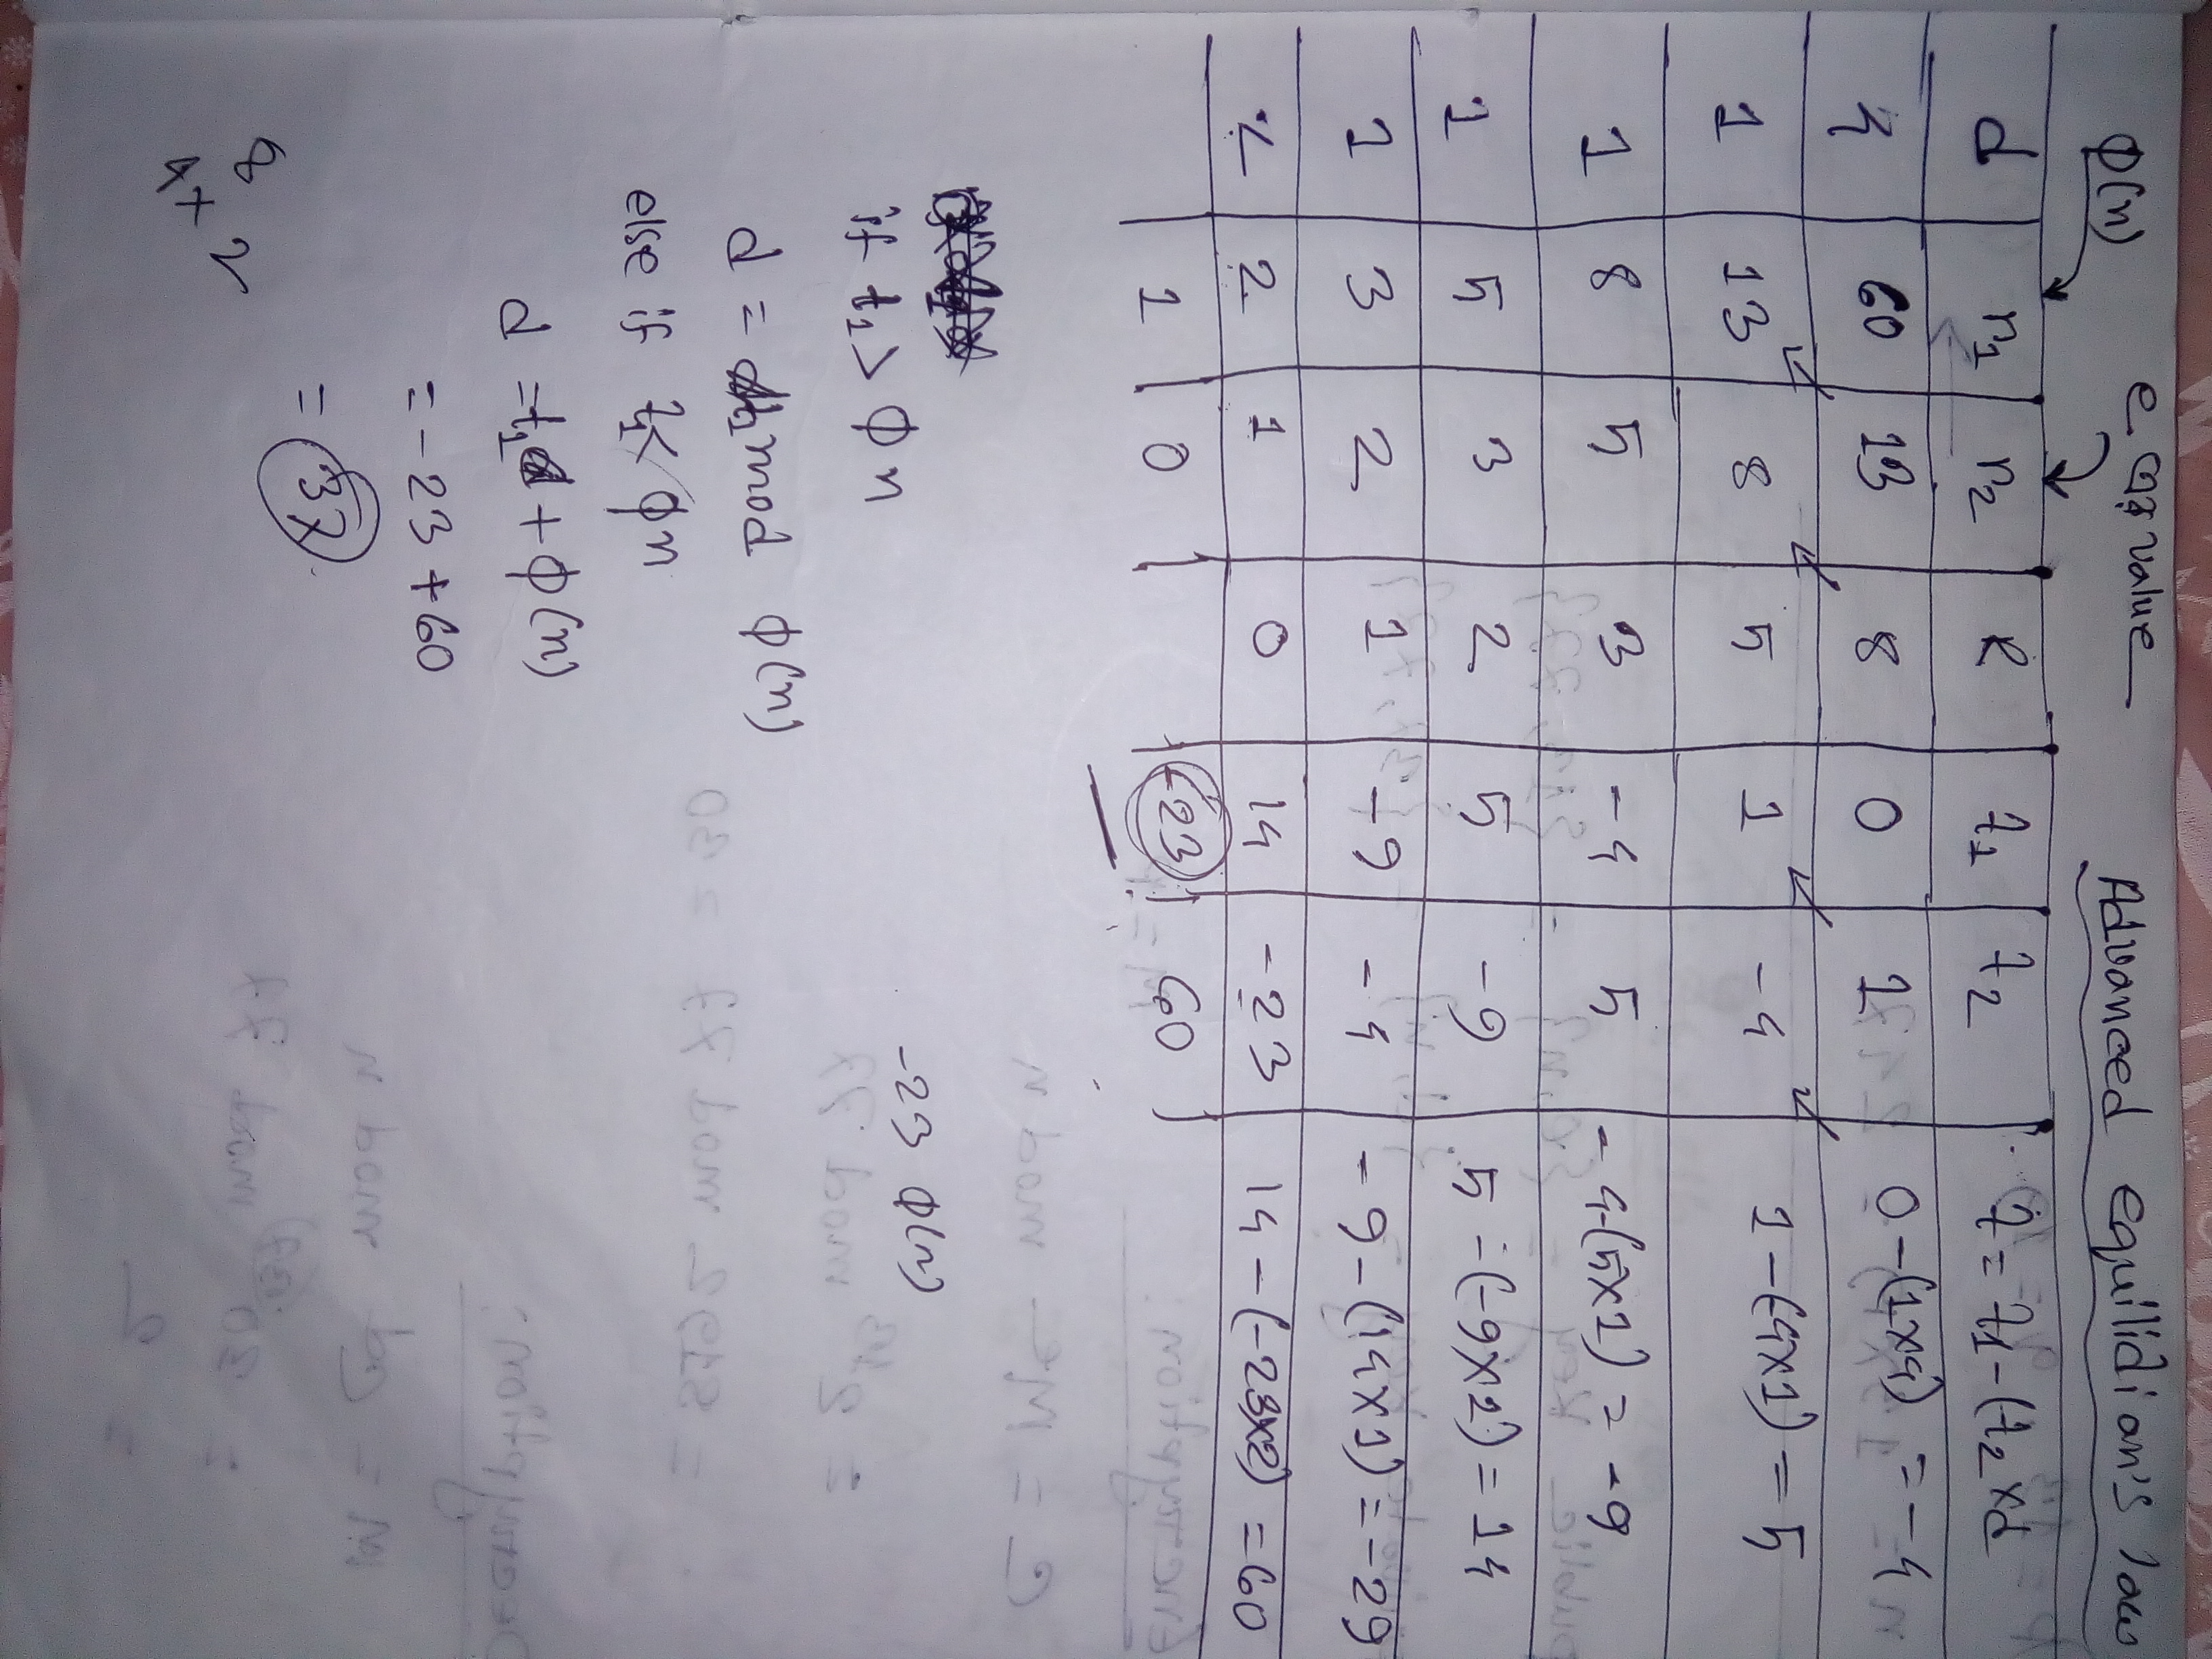 φ(n) e এর value Advanced equilidian's law
d r₁ r₂ R t₁ t₂ t = t₁-(t₂ xd
4 60 13 8 0 1 0-(1x4) = -4
1 13 8 5 1 -4 1-(-4x1) = 5
1 8 5 3 -4 5 -4-(5x1) = -9
1 5 3 2 5 -9 5-(-9x1) = 14
1 3 2 1 -9 -4 -9-(14x1) = -29
2 2 1 0 14 -23 14-(-23x2) = 60
1 0 -23 60
if t₁ > φn
-23 φ(n)
d = t₁ mod φ(n)
else if t₁ < φn
d = t₁ + φ(n)
= -23 + 60
= 37
8
4 x 2